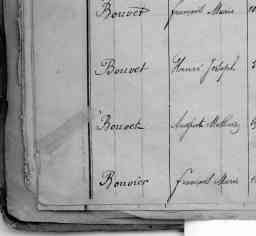 Bouvet François Marie
Bouvet Henri Joseph
Bouvet Auguste
Bouvier François Marie